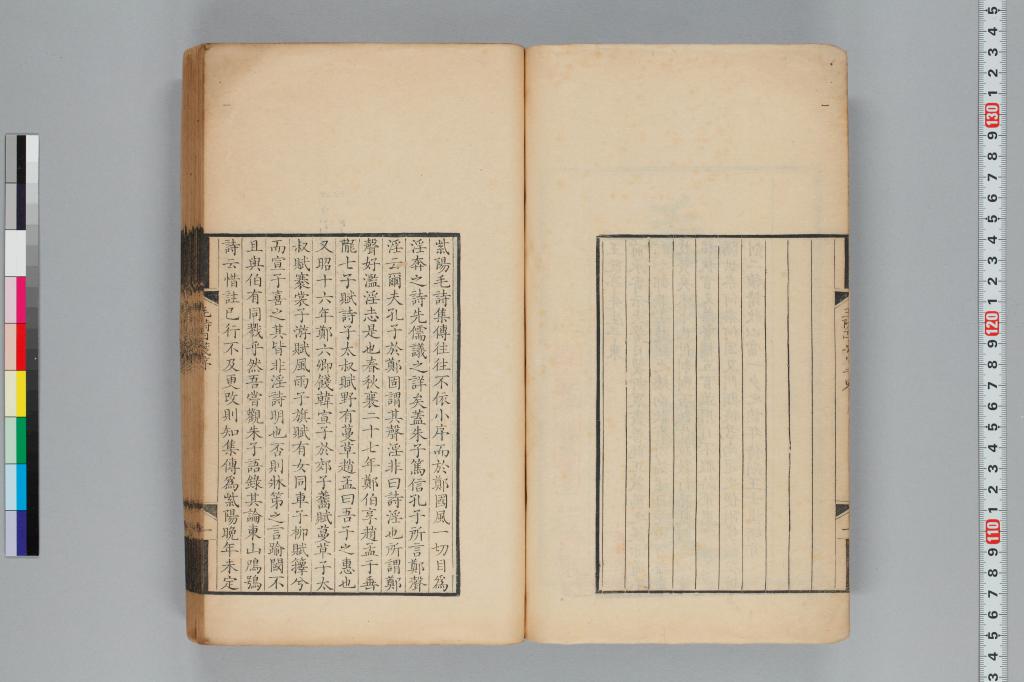 紫陽毛詩集傳往往不依小序而於鄭國風一切目爲
淫奔之詩先儒議之詳矣蓋朱子篤信孔子所言鄭聲
淫云爾夫孔子於鄭固謂其聲淫非曰詩淫也所謂鄭
聲好濫淫志是也春秋襄二十七年鄭伯享趙孟于垂
隴七子賦詩子太叔賦野有蔓草趙孟曰吾子之惠也
又昭十六年鄭六卿餞韓宣子於郊子齹賦蔓草子太
叔賦褰裳子游賦風雨子旗賦有女同車子柳賦蘀兮
而宣子喜之其皆非淫詩明也否則牀第之言踰閾不
且與伯有同戮乎然吾嘗觀朱子語錄其論東山鴟鴞
詩云惜註已行不及更改則知集傳爲紫陽晚年未定